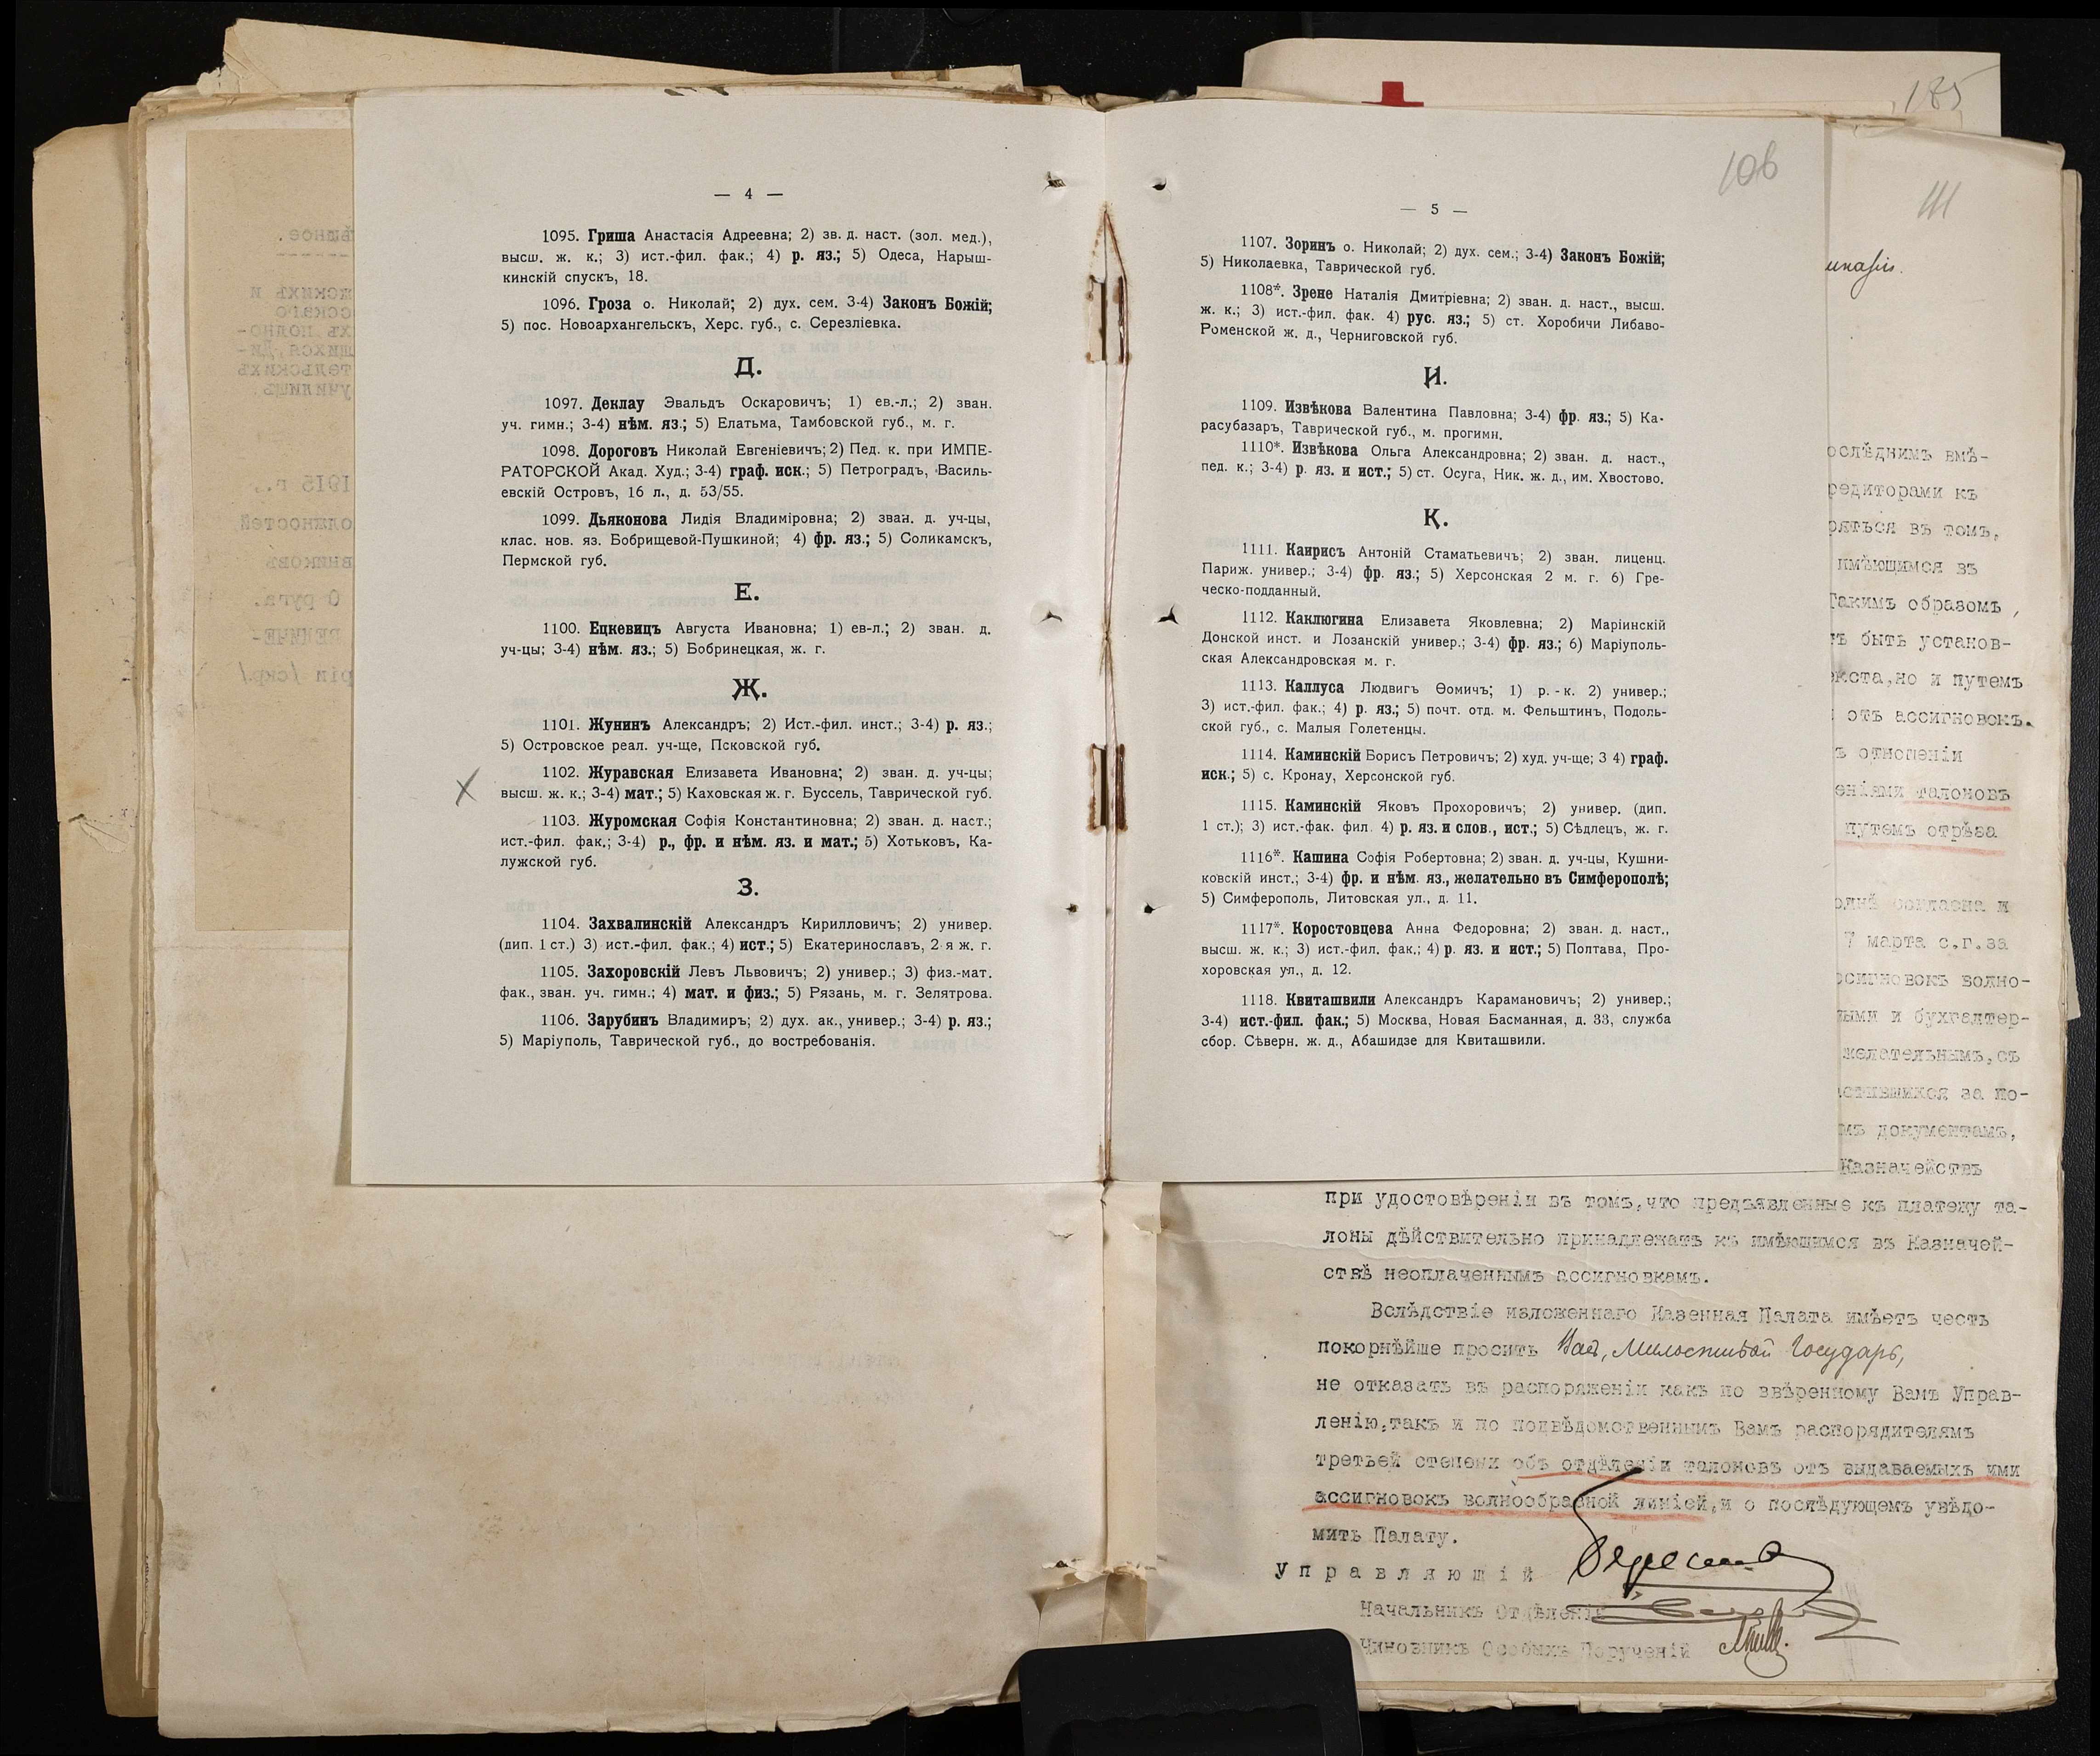 — 4 —
1095. Гриша Анастасія Адреевна; 2) зв. д. наст. (зол. мед.),
высш. ж. к.; 3) ист.-фил. фак.; 4) р. яз.; 5) Одеса, Нарыш-
кинскій спускъ, 18.
1096. Гроза о. Николай; 2) дух. сем. 3-4) Законъ Божій;
5) пос. Новоархангельскъ, Херс. губ., с. Серезліевка.
Д.
1097. Деклау Эвальдъ Оскаровичъ; 1) ев.-л.; 2) зван.
уч. гимн.; 3-4) нѣм. яз.; 5) Елатьма, Тамбовской губ., м. г.
1098. Дороговъ Николай Евгеніевичъ; 2) Пед. к. при ИМПЕ-
РАТОРСКОЙ Акад. Худ.; 3-4) граф. иск.; 5) Петроградъ, Василь-
евскій Островъ, 16 л., д. 53/55.
1099. Дьяконова Лидія Владиміровна; 2) зван. д. уч-цы,
клас. нов. яз. Бобрищевой-Пушкиной; 4) фр. яз.; 5) Соликамскъ,
Пермской губ.
Е.
1100. Ецкевицъ Августа Ивановна; 1) ев-л.; 2) зван. д.
уч-цы; 3-4) нѣм. яз.; 5) Бобринецкая, ж. г.
Ж.
1101. Жунинъ Александръ; 2) Ист.-фил. инст.; 3-4) р. яз.;
5) Островское реал. уч-ще, Псковской губ.
1102. Журавская Елизавета Ивановна; 2) зван. д. уч-цы;
высш. ж. к.; 3-4) мат.; 5) Каховская ж. г. Буссель, Таврической губ.
1103. Журомская Софія Константиновна; 2) зван. д. наст.;
ист-фил. фак.; 3-4) р., фр. и нѣм. яз. и мат.; 5) Хотьковъ, Ка-
лужской губ.
З.
1104. Захвалинскій Александръ Кирилловичъ; 2) универ.
(дип. 1 ст.) 3) ист.-фил. фак.; 4) ист.; 5) Екатеринославъ, 2-я ж. г.
1105. Захоровскій Левъ Львовичъ; 2) универ.; 3) физ.-мат.
фак., зван. уч. гимн.; 4) мат. и физ.; 5) Рязань, м. г. Зелятрова.
1106. Зарубинъ Владимиръ; 2) дух. ак., универ.; 3-4) р. яз.;
5) Маріуполь, Таврической губ., до востребованія.
185
106
111
— 5 —
1107. Зоринъ о. Николай; 2) дух. сем.; 3-4) Законъ Божій;
5) Николаевка, Таврической губ.
1108*. Зрене Наталія Дмитріевна; 2) зван. д. наст., высш.
ж. к.; 3) ист.-фил. фак. 4) рус. яз.; 5) ст. Хоробичи Либаво-
Роменской ж. д., Черниговской губ.
И.
1109. Извѣкова Валентина Павловна; 3-4) фр. яз.; 5) Ка-
расубазаръ, Таврической губ., м. прогимн.
1110*. Извѣкова Ольга Александровна; 2) зван. д. наст.,
пед. к.; 3-4) р. яз. и ист.; 5) ст. Осуга, Ник. ж. д., им. Хвостово.
К.
1111. Каирисъ Антоній Стаматьевичъ; 2) зван. лиценц.
Париж. универ.; 3-4) фр. яз.; 5) Херсонская 2 м. г. 6) Гре-
ческо-подданный.
1112. Каклюгина Елизавета Яковлевна; 2) Маріинскій
Донской инст. и Лозанскій универ.; 3-4) фр. яз.; 6) Маріуполь-
ская Александровская м. г.
1113. Каллуса Людвигъ Ѳомичъ; 1) р. - к. 2) универ.;
3) ист.-фил. фак.; 4) р. яз.; 5) почт. отд. м. Фельштинъ, Подоль-
ской губ., с. Малыя Голетенцы.
1114. Каминскій Борисъ Петровичъ; 2) худ. уч-ще; 3 4) граф.
иск.; 5) с. Кронау, Херсонской губ.
1115. Каминскій Яковъ Прохоровичъ; 2) универ. (дип.
1 ст.); 3) ист.-фак. фил. 4) р. яз. и слов., ист.; 5) Сѣдлецъ, ж. г.
1116*. Кашина Софія Робертовна; 2) зван. д. уч-цы, Кушни-
ковскій инст.; 3-4) фр. и нѣм. яз., желательно въ Симферополѣ;
5) Симферополь, Литовская ул., д. 11.
1117*. Коростовцева Анна Федоровна; 2) зван. д. наст.,
высш. ж. к.; 3) ист.-фил. фак.; 4) р. яз. и ист.; 5) Полтава, Про-
хоровская ул., д. 12.
1118. Квиташвили Александръ Караманович; 2) универ.;
3-4) ист.-фил. фак.; 5) Москва, Новая Басманная, д. 33, служба
сбор. Сѣверн. ж. д., Абашидзе для Квиташвили.
ослѣднимъ вмѣ-
редиторами къ
ряться въ томъ,
имѣющимся въ
Такимъ образомъ,
ъ быть установ-
кста, но и путемъ
отъ ассигновокъ.
ъ отношеніи
еніями талоновъ
путемъ отрѣза
7 марта с.г. за
ссигновокъ волно-
ыми и бухгалтер-
желательнымъ, съ
мъ документамъ,
Казначействъ
при удостовѣреніи въ томъ, что предъявленные къ платежу та-
лоны дѣйствительно принадлежатъ къ имѣющимся въ Казначей-
ствѣ неоплаченнымъ ассигновкамъ.
Вслѣдствіе изложеннаго Казенная Палата имѣетъ честь
покорнѣйше просить Васъ, Милостивый Государь,
не отказать въ распоряженіи какъ по ввѣренному Вамъ Управ-
ленію, такъ и по подвѣдомственнымъ Вамъ распорядителямъ
третьей степени объ отдѣленіи талоновъ отъ выдаваемыхъ ими
ассигновокъ волнообразной линіей, и о послѣдующемъ увѣдо-
мить Палату.
Управляющій
Начальникъ Отдѣленія
Чиновникъ Особыхъ Порученій